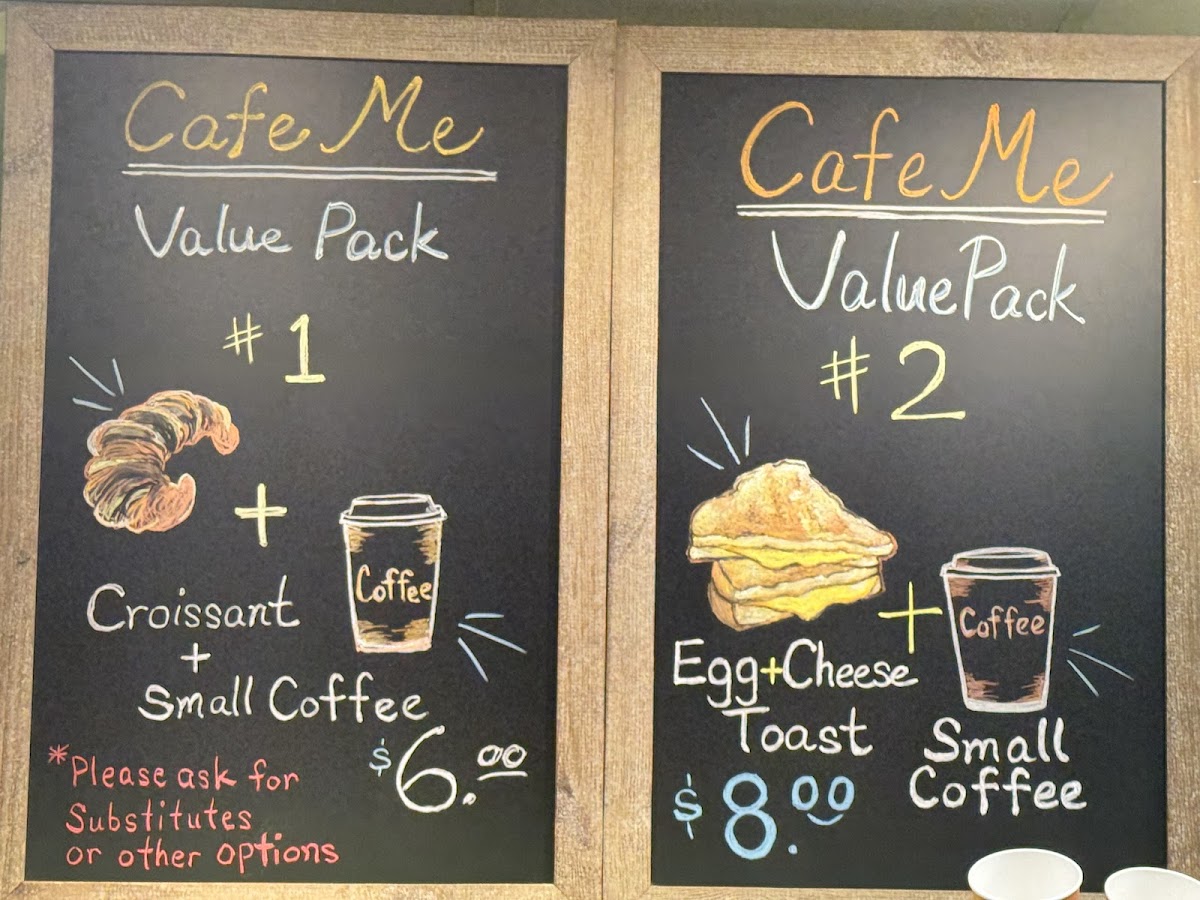 Cafe Me
Value Pack
#1
+
Coffee
Croissant
+
Small Coffee
$6.00
*Please ask for
Substitutes
or other options
Cafe Me
Value Pack
#2
+
Coffee
Egg+Cheese
Toast
Small
Coffee
$8.00